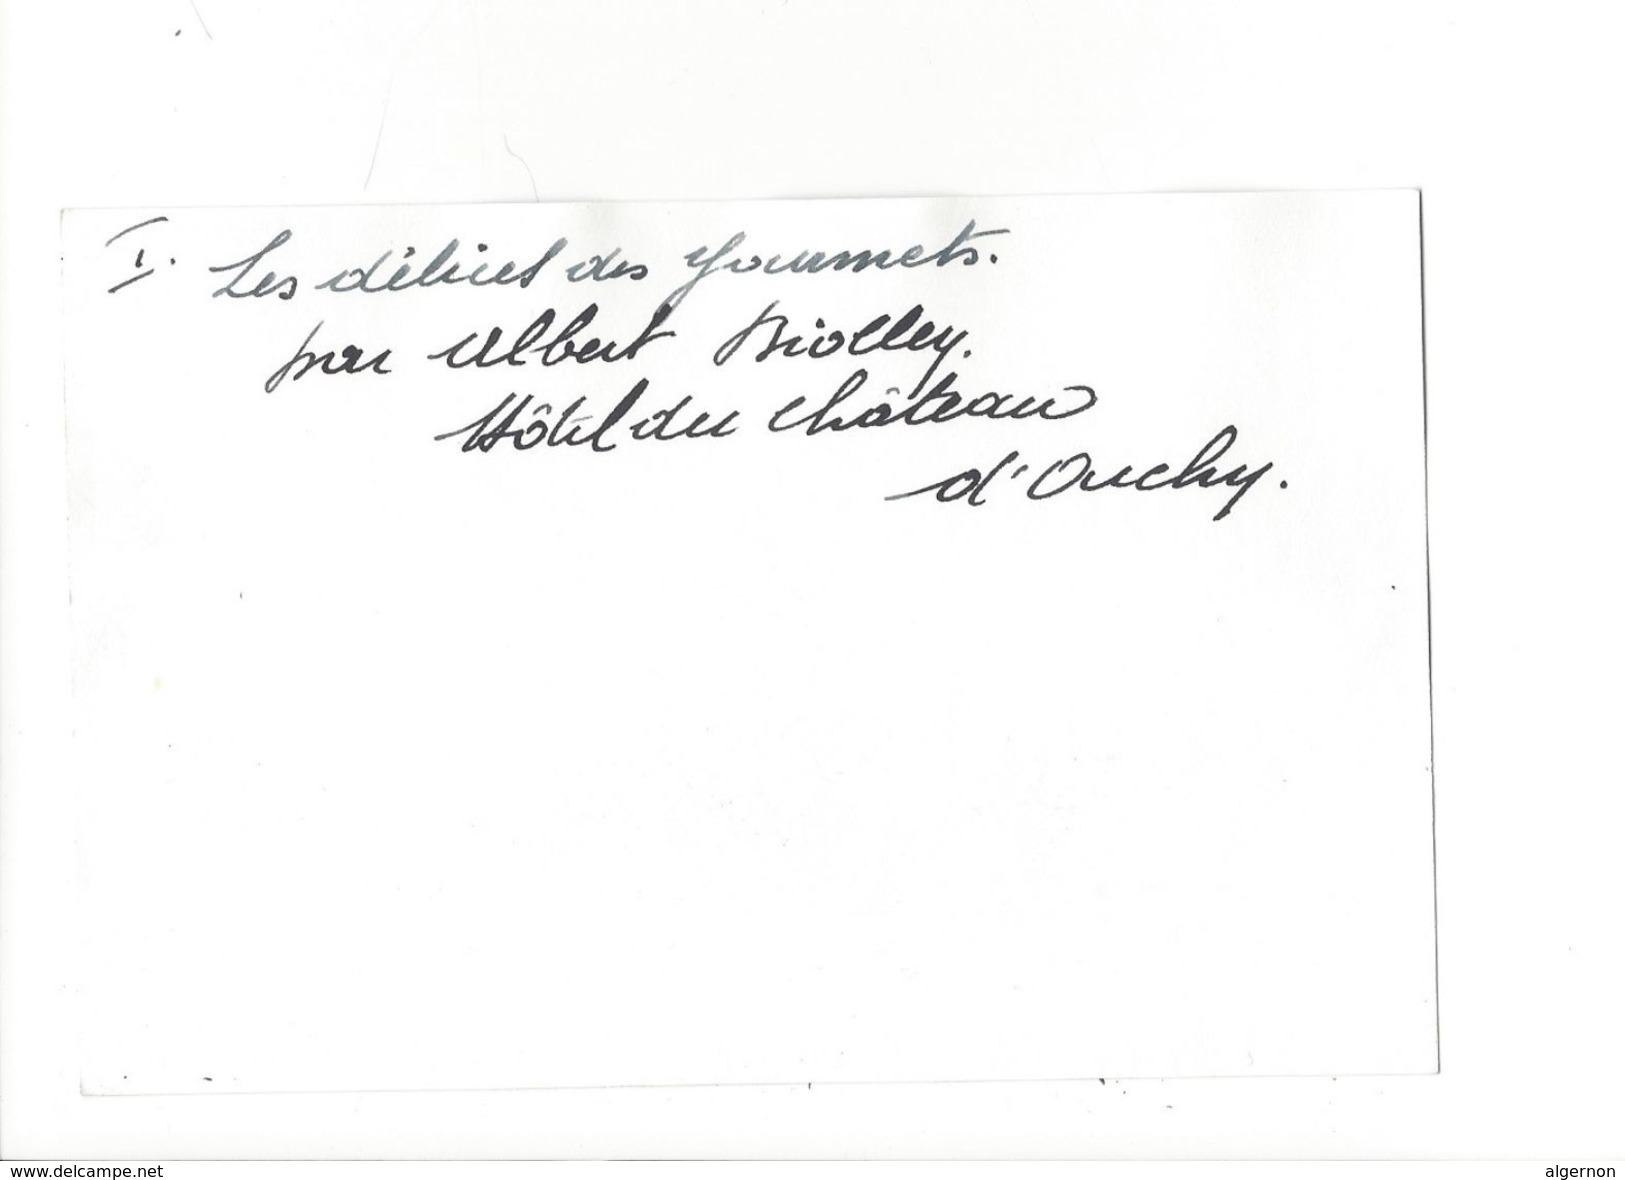 I. Les délices des gourmets.
par Albert Biolley.
Hôtel du Château
d'Ouchy.
www.delcampe.net
algernon